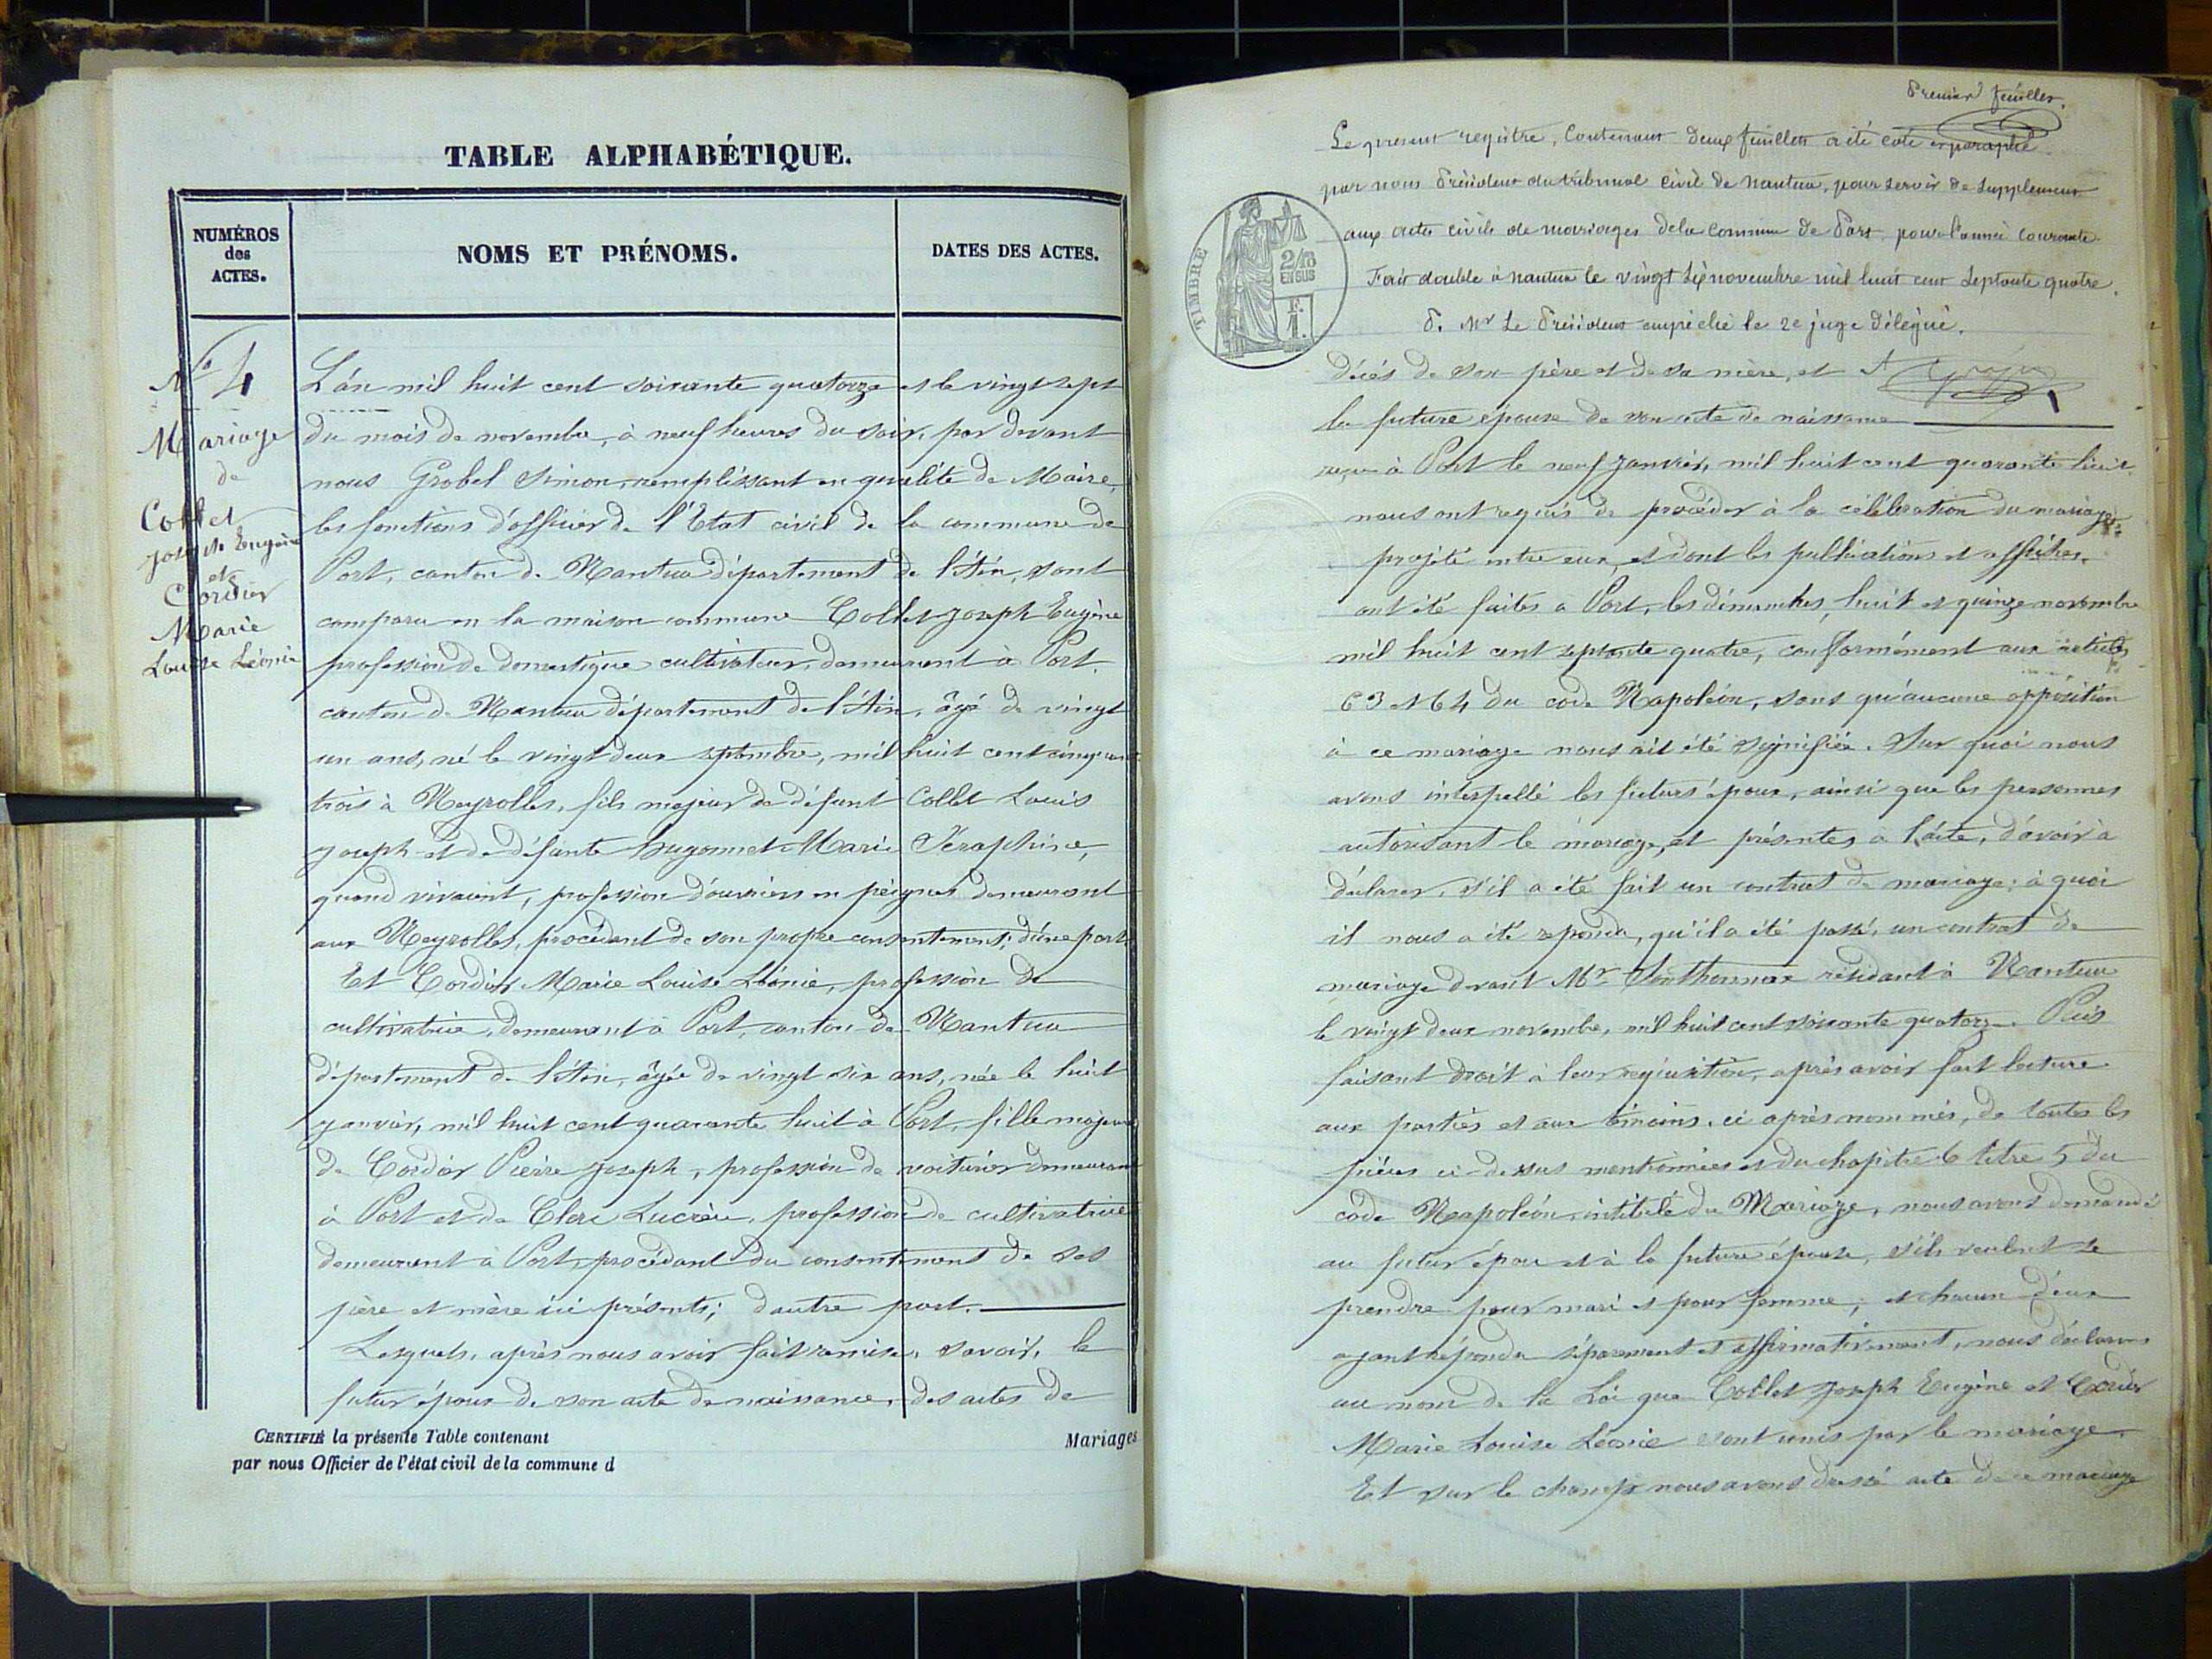 TABLE ALPHABÉTIQUE.
NUMÉROS
des
ACTES.
NOMS ET PRÉNOMS.
DATES DES ACTES.
No 4
Mariage
de
Collet
Joseph Eugène
et
Cordier
Marie
Louise Léonie
L'an mil huit cent soixante quatorze et le vingt sept
du mois de novembre, à neuf heures du soir, par devant
nous Grobel Simon, remplissant en qualité de Maire,
les fonctions d'officier de l'Etat civil de la commune de
Port, canton de Nantua département de l'Ain, sont
comparu en la maison commune Collet Joseph Eugène
profession de domestique cultivateur, demeurant à Port,
canton de Nantua département de l'Ain, âgé de vingt
un ans, né le vingt deux septembre, mil huit cent cinquante
trois à Neyrolles, fils majeur de défunt Collet Louis
Joseph et de défunte Hugonnet Marie Séraphine,
quand vivaient, profession d'ouvriers en peignes demeurant
aux Neyrolles, procédant de son propre consentement, d'une part
Et Cordier Marie Louise Léonie, profession de
cultivatrice, demeurant à Port, canton de Nantua
département de l'Ain, âgée de vingt six ans, née le huit
janvier, mil huit cent quarante huit à Port, fille majeure
de Cordier Pierre Joseph, profession de voiturier demeurant
à Port et de Clerc Lucrèce, profession de cultivatrice
demeurant à Port, procédant du consentement de ses
père et mère ici présents; d'autre part.
Lesquels, après nous avoir fait remise, savoir, le
futur époux de son acte de naissance, des actes de
CERTIFIÉ la présente Table contenant
Mariages
par nous Officier de l'état civil de la commune d
Premier feuillet.
Le present registre, Contenant deux feuillets a été coté et paraphé
par nous Président du tribunal civil de nantua, pour servir de supplement
aux actes civils de mariages de la commune de Port, pour l'année courante.
Fait double à nantua le vingt six novembre mil huit cent septante quatre.
P. Mr Le Président empêché le 2e juge délégué.
TIMBRE
2/10
EN SUS
F.
1.
décès de son père et de sa mère, et
la future épouse de son acte de naissance
reçu à Port le neuf janvier, mil huit cent quarante huit
nous ont requis de procéder à la célébration du mariage
projeté entre eux, et dont les publications et affiches
ont été faites a Port, les dimanches, huit et quinze novembre
mil huit cent septante quatre, conformément aux articles
63 et 64 du code Napoléon, sans qu'aucune opposition
à ce mariage nous ait été signifiée. Sur quoi nous
avons interpellé les futurs époux, ainsi que les personnes
autorisant le mariage, et présentes a l'acte, d'avoir à
déclarer, s'il a été fait un contrat de mariage; à quoi
il nous a été repondu, qu'il a été passé, un contrat de
mariage devant Mr Sonthonnax résidant à Nantua
le vingt deux novembre, mil huit cent soixante quatorze. Puis
faisant droit à leur requisition, après avoir fait lecture
aux parties et aux témoins, ci après nommés, de toutes les
pièces ci-dessus mentionnées et du chapitre 6 titre 5 du
code Napoléon, intitulé du Mariage, nous avons demandé
au futur époux et à la future épouse, s'ils veulent se
prendre pour mari et pour femme; et chacun d'eux
ayant répondu séparement et affirmativement, nous déclarons
au nom de la Loi que Collet Joseph Eugène et Cordier
Marie Louise Léonie sont unis par le mariage.
Et sur le champ nous avons dressé acte de ce mariage